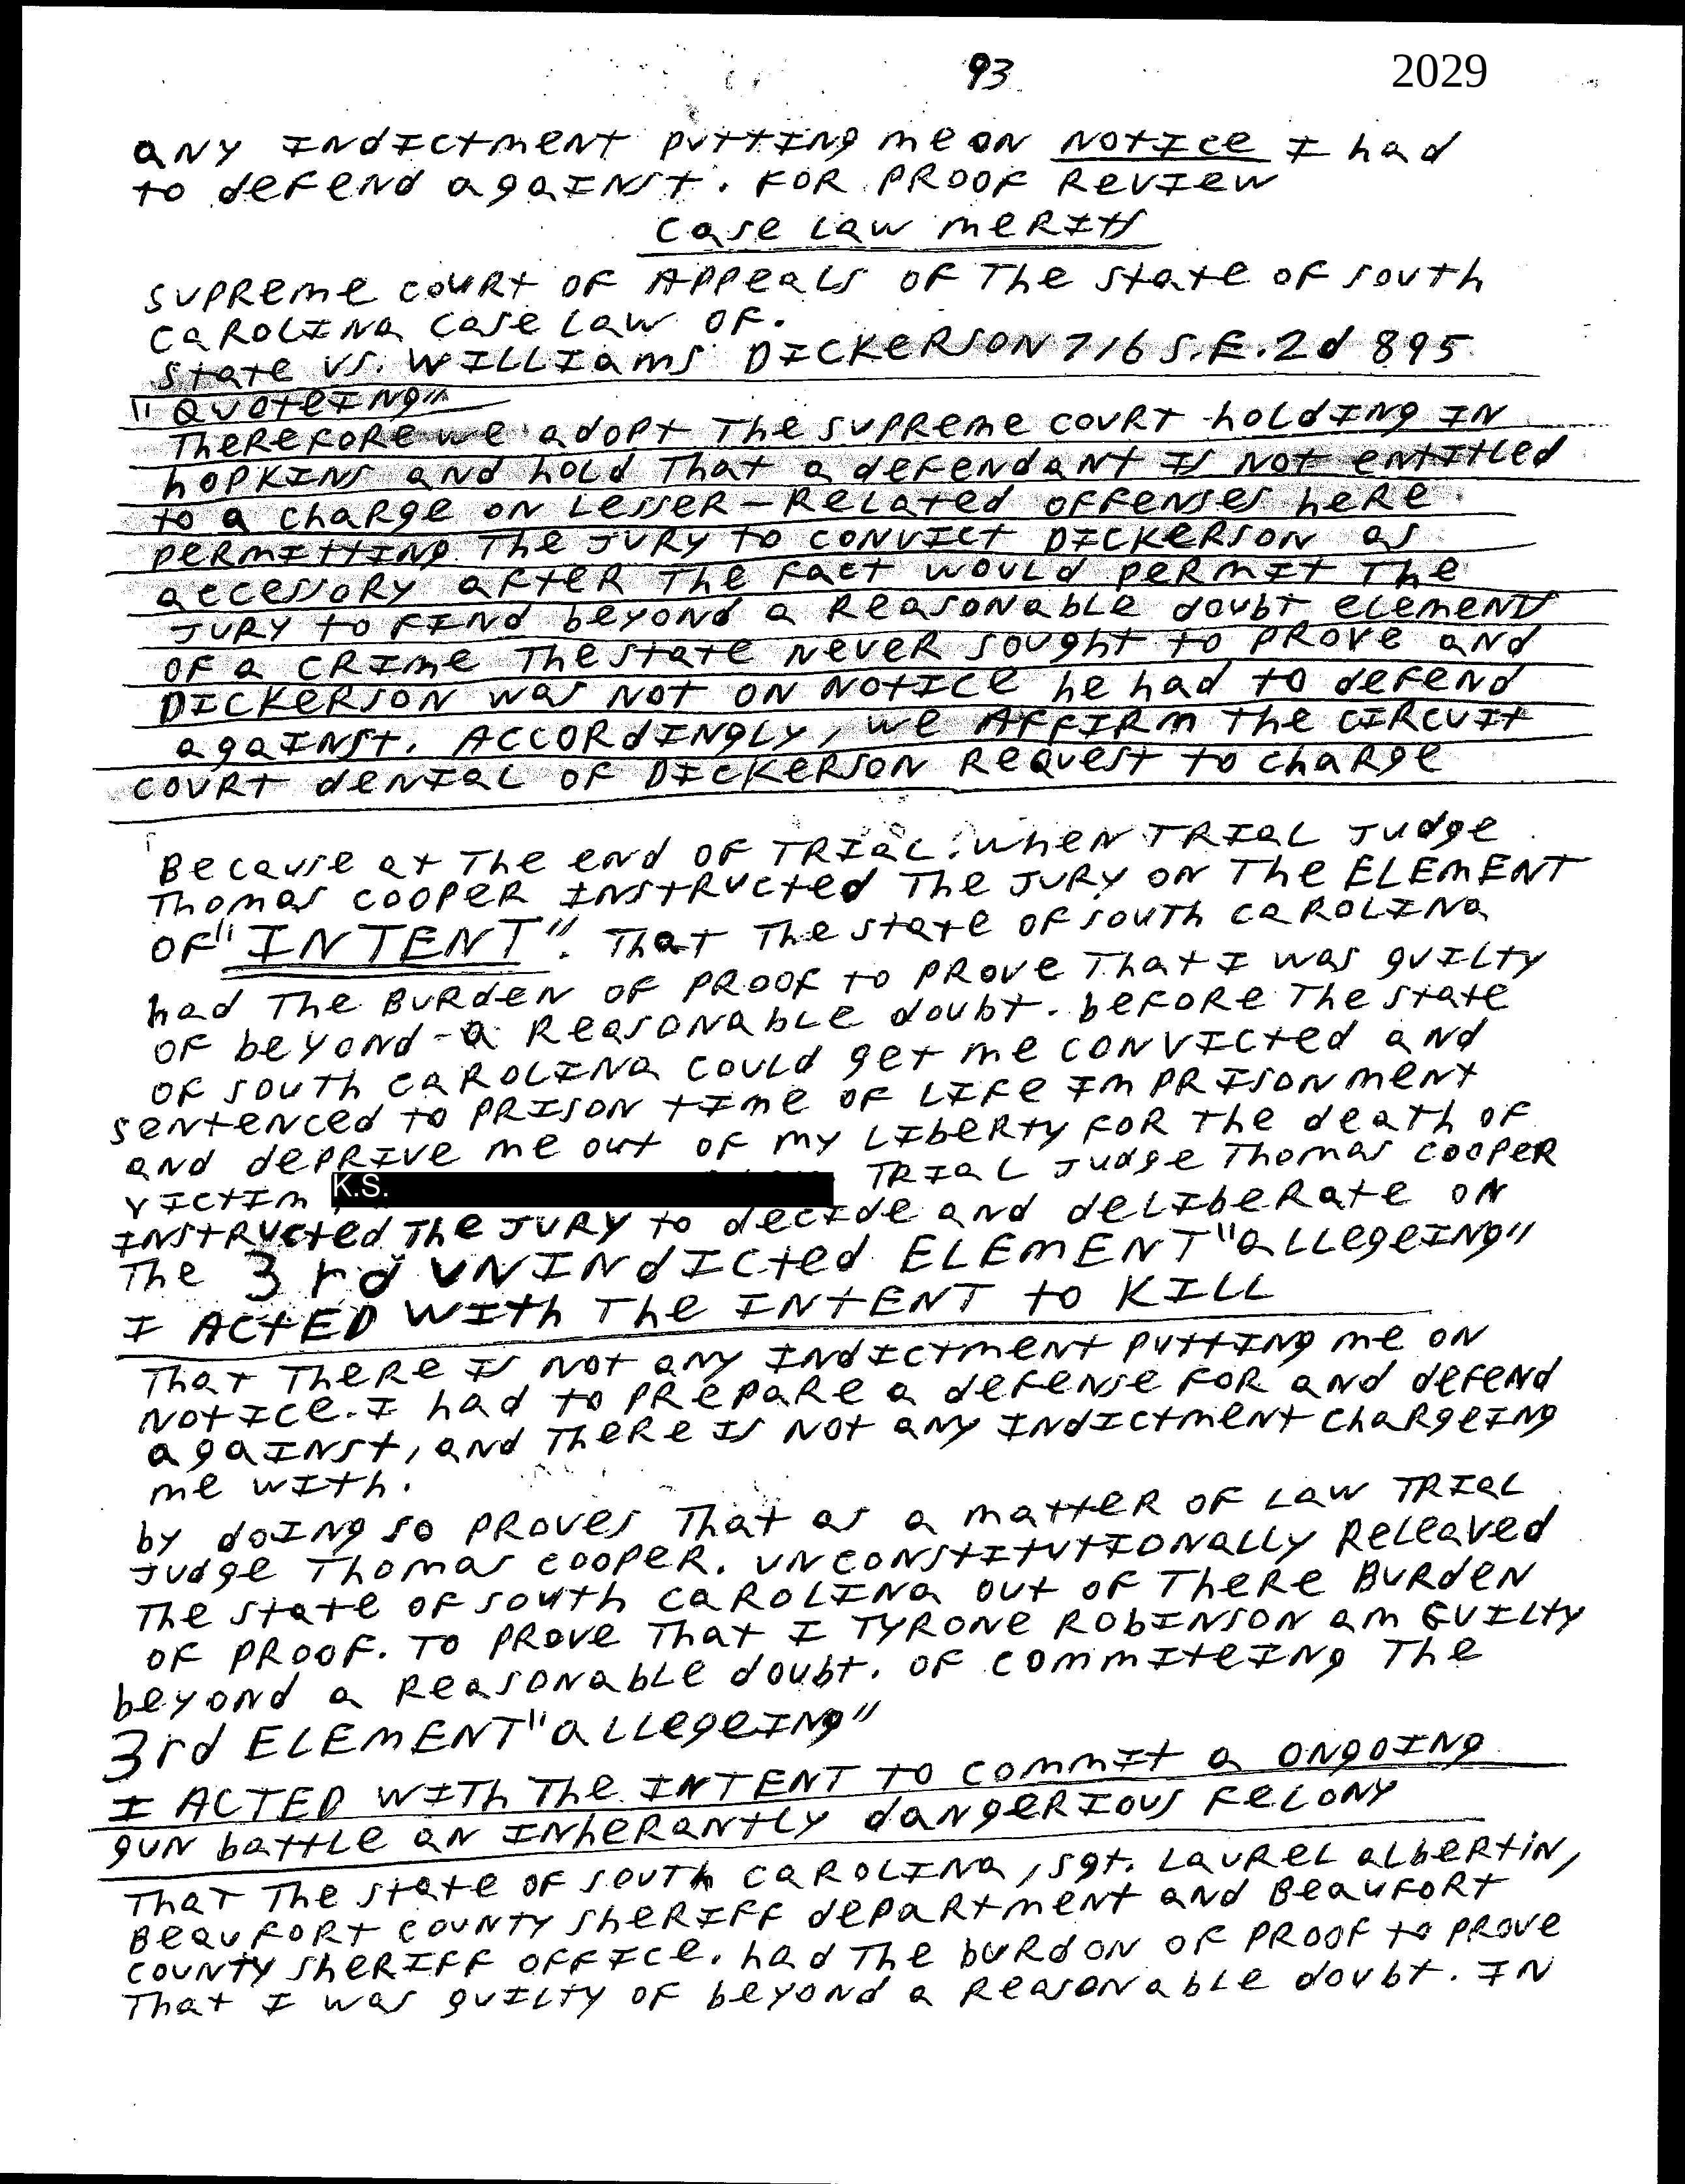 93
2029
any INdIctment puttINg me on Notice I had
to defend agaINst. FOR PROOF Review
Case Law meRIts
Supreme court of Appeals of The State of South
Carolina Case Law of.
State vs. Williams Dickerson 716 S.E.2d 895
"Quoteing"
Therefore we adopt The supreme court holding in
hopkins and hold That a defendant is not entitled
to a charge on Lesser-Related offenses here
permitting The Jury to convict Dickerson as
accessory after The fact would permit The
Jury to find beyond a Reasonable doubt elements
of a crime The state never sought to prove and
Dickerson was not on notice he had to defend
against. Accordingly, we Affirm The circuit
court denial of Dickerson Request to charge
Because at The end of TRIaL. when TRIAL Judge
Thomas Cooper Instructed The Jury on The ELEMENT
of "INTENT". That The state of south carolina
had The Burden of Proof to prove That I was guilty
of beyond-a Reasonable doubt. before The state
of south carolina could get me convicted and
sentenced to prison time of Life Imprisonment
and deprive me out of my Liberty for The death of
victim K.S. TRIaL Judge Thomas Cooper
Instructed The Jury to decide and deliberate on
The 3rd UNINdIcted ELEMENT "aLLegeing"
I ACTED WITh The INTENT to KILL
That There is not any Indictment putting me on
notice. I had to prepare a defense for and defend
against, and There is not any Indictment chargeing
me with.
by doing so proves That as a matter of Law TRIaL
Judge Thomas Cooper. unconstitutionally Releaved
The state of south carolina out of There Burden
of proof. To prove That I Tyrone Robinson am Guilty
beyond a Reasonable doubt. of commiteing The
3rd ELEMENT "aLLegeing"
I ACTED WITh The INTENT TO commit a ongoing
gun battle an Inherantly dangerious Felony
That The state of south carolina, sgt. Laurel albertin,
Beaufort county sheriff department and Beaufort
county sheriff office. had The burdon of proof to prove
That I was guilty of beyond a Reasonable doubt. In